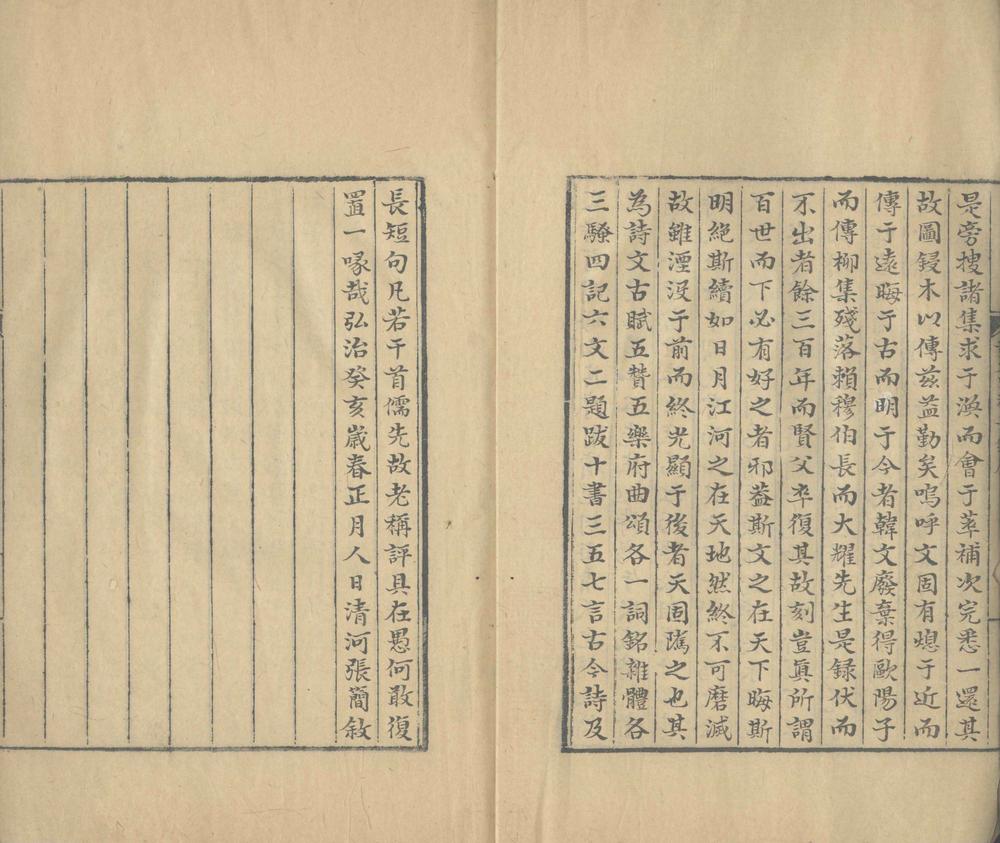 是旁搜諸集求于渙而會于萃補次完悉一還其
故圖鋟木以傳兹益勤矣嗚呼文固有熄于近而
傳于遠晦于古而明于今者韓文廢棄得歐陽子
而傳柳集殘落賴穆伯長而大耀先生是録伏而
不出者餘三百年而賢父卒復其故刻豈眞所謂
百世而下必有好之者邪葢斯文之在天下晦斯
明絶斯續如日月江河之在天地然終不可磨滅
故雖湮没于前而終光顯于後者天固隲之也其
為詩文古賦五贊五樂府曲頌各一詞銘雜體各
三騷四記六文二題跋十書三五七言古今詩及
長短句凡若干首儒先故老稱評具在愚何敢復
置一喙哉弘治癸亥嵗春正月人日清河張簡敘